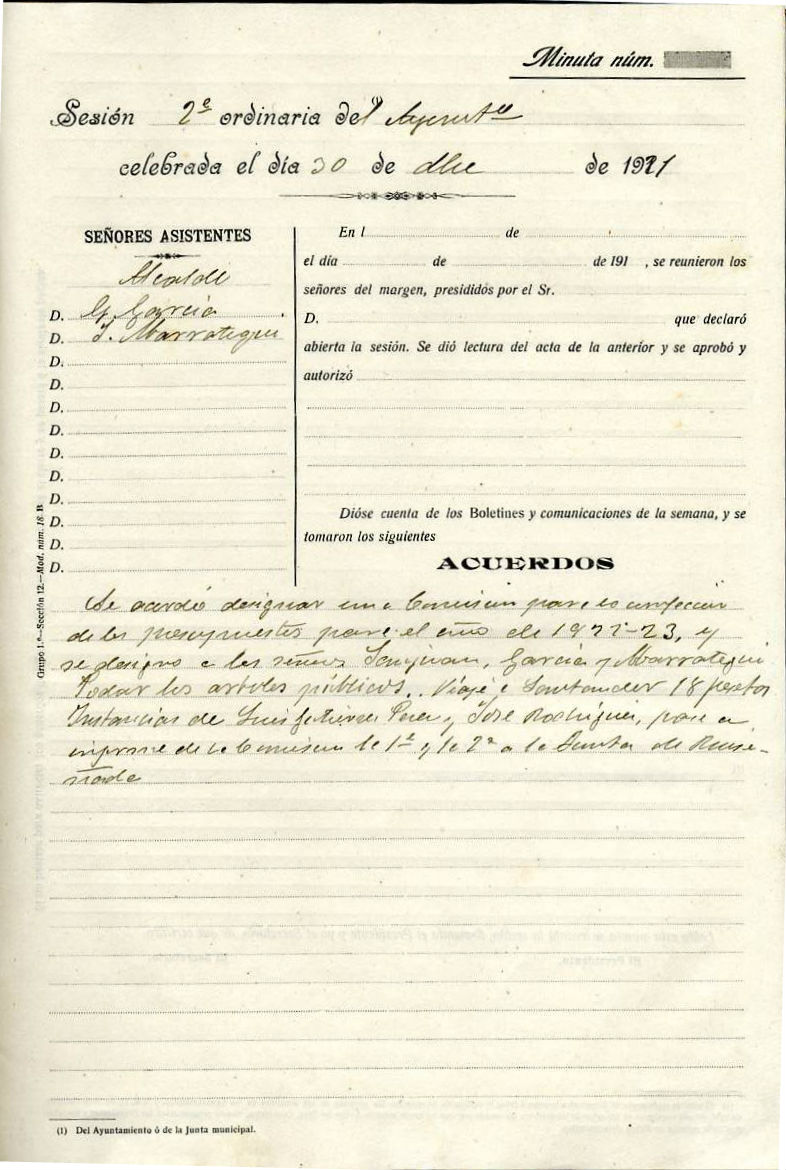 Minuta núm.
Sesión 2ª ordinaria del Ayuntº
celebrada el día 30 de dbe de 1921
SEÑORES ASISTENTES
Alcalde
D. G. García
D. I. Marrategui
D.
D.
D.
D.
D.
D.
D.
D.
D.
D.
En l de
el día de de 191 , se reunieron los
señores del margen, presididos por el Sr.
D. que declaró
abierta la sesión. Se dió lectura del acta de la anterior y se aprobó y
autorizó
Dióse cuenta de los Boletines y comunicaciones de la semana, y se
tomaron los siguientes
ACUERDOS
Se acordó designar una Comision para la confeccion
de los presupuestos para el año de 1922-23, y
se designo a los señores Sanjuan, García y Marrategui
Podar los arboles públicos. Viaje a Santander 18 pesetas
Instancias de Luis Perez y José Rodríguez, pase a
informe de la Comision la 1ª y la 2ª a la Junta de Ruise-
ñada
Grupo 1.º—Sección 12.—Mod. núm. 18 B
(1) Del Ayuntamiento ó de la Junta municipal.